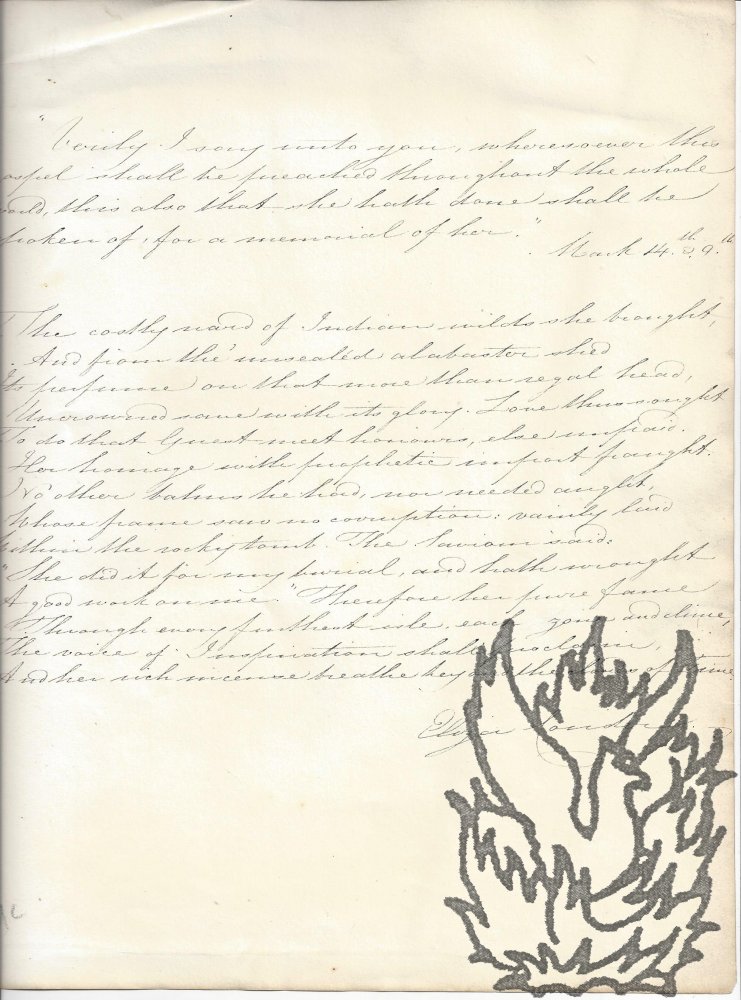 "Verily I say unto you, wheresoever this
ospel shall be preached throughout the whole
orld, this also that she hath done shall be
poken of, for a memorial of her."
Mark 14.th 9.th
The costly nard of Indian wilds she brought,
And from the' unsealéd alabaster shed
Its perfume on that more than regal head,
Uncrowned save with its glory. Love thus sought
To do that Guest meet honours, else unpaid.
Her homage with prophetic import fraught.
No other balms he had, nor needed aught,
Whose frame saw no corruption: vainly laid
Within the rocky tomb. The Saviour said:
"She did it for my burial, and hath wrought
A good work on me." Therefore her pure fame
Through every furthest isle, each zone and clime,
The voice of Inspiration shall proclaim,
And her rich incense breathe beyond the of Time.
Eliza